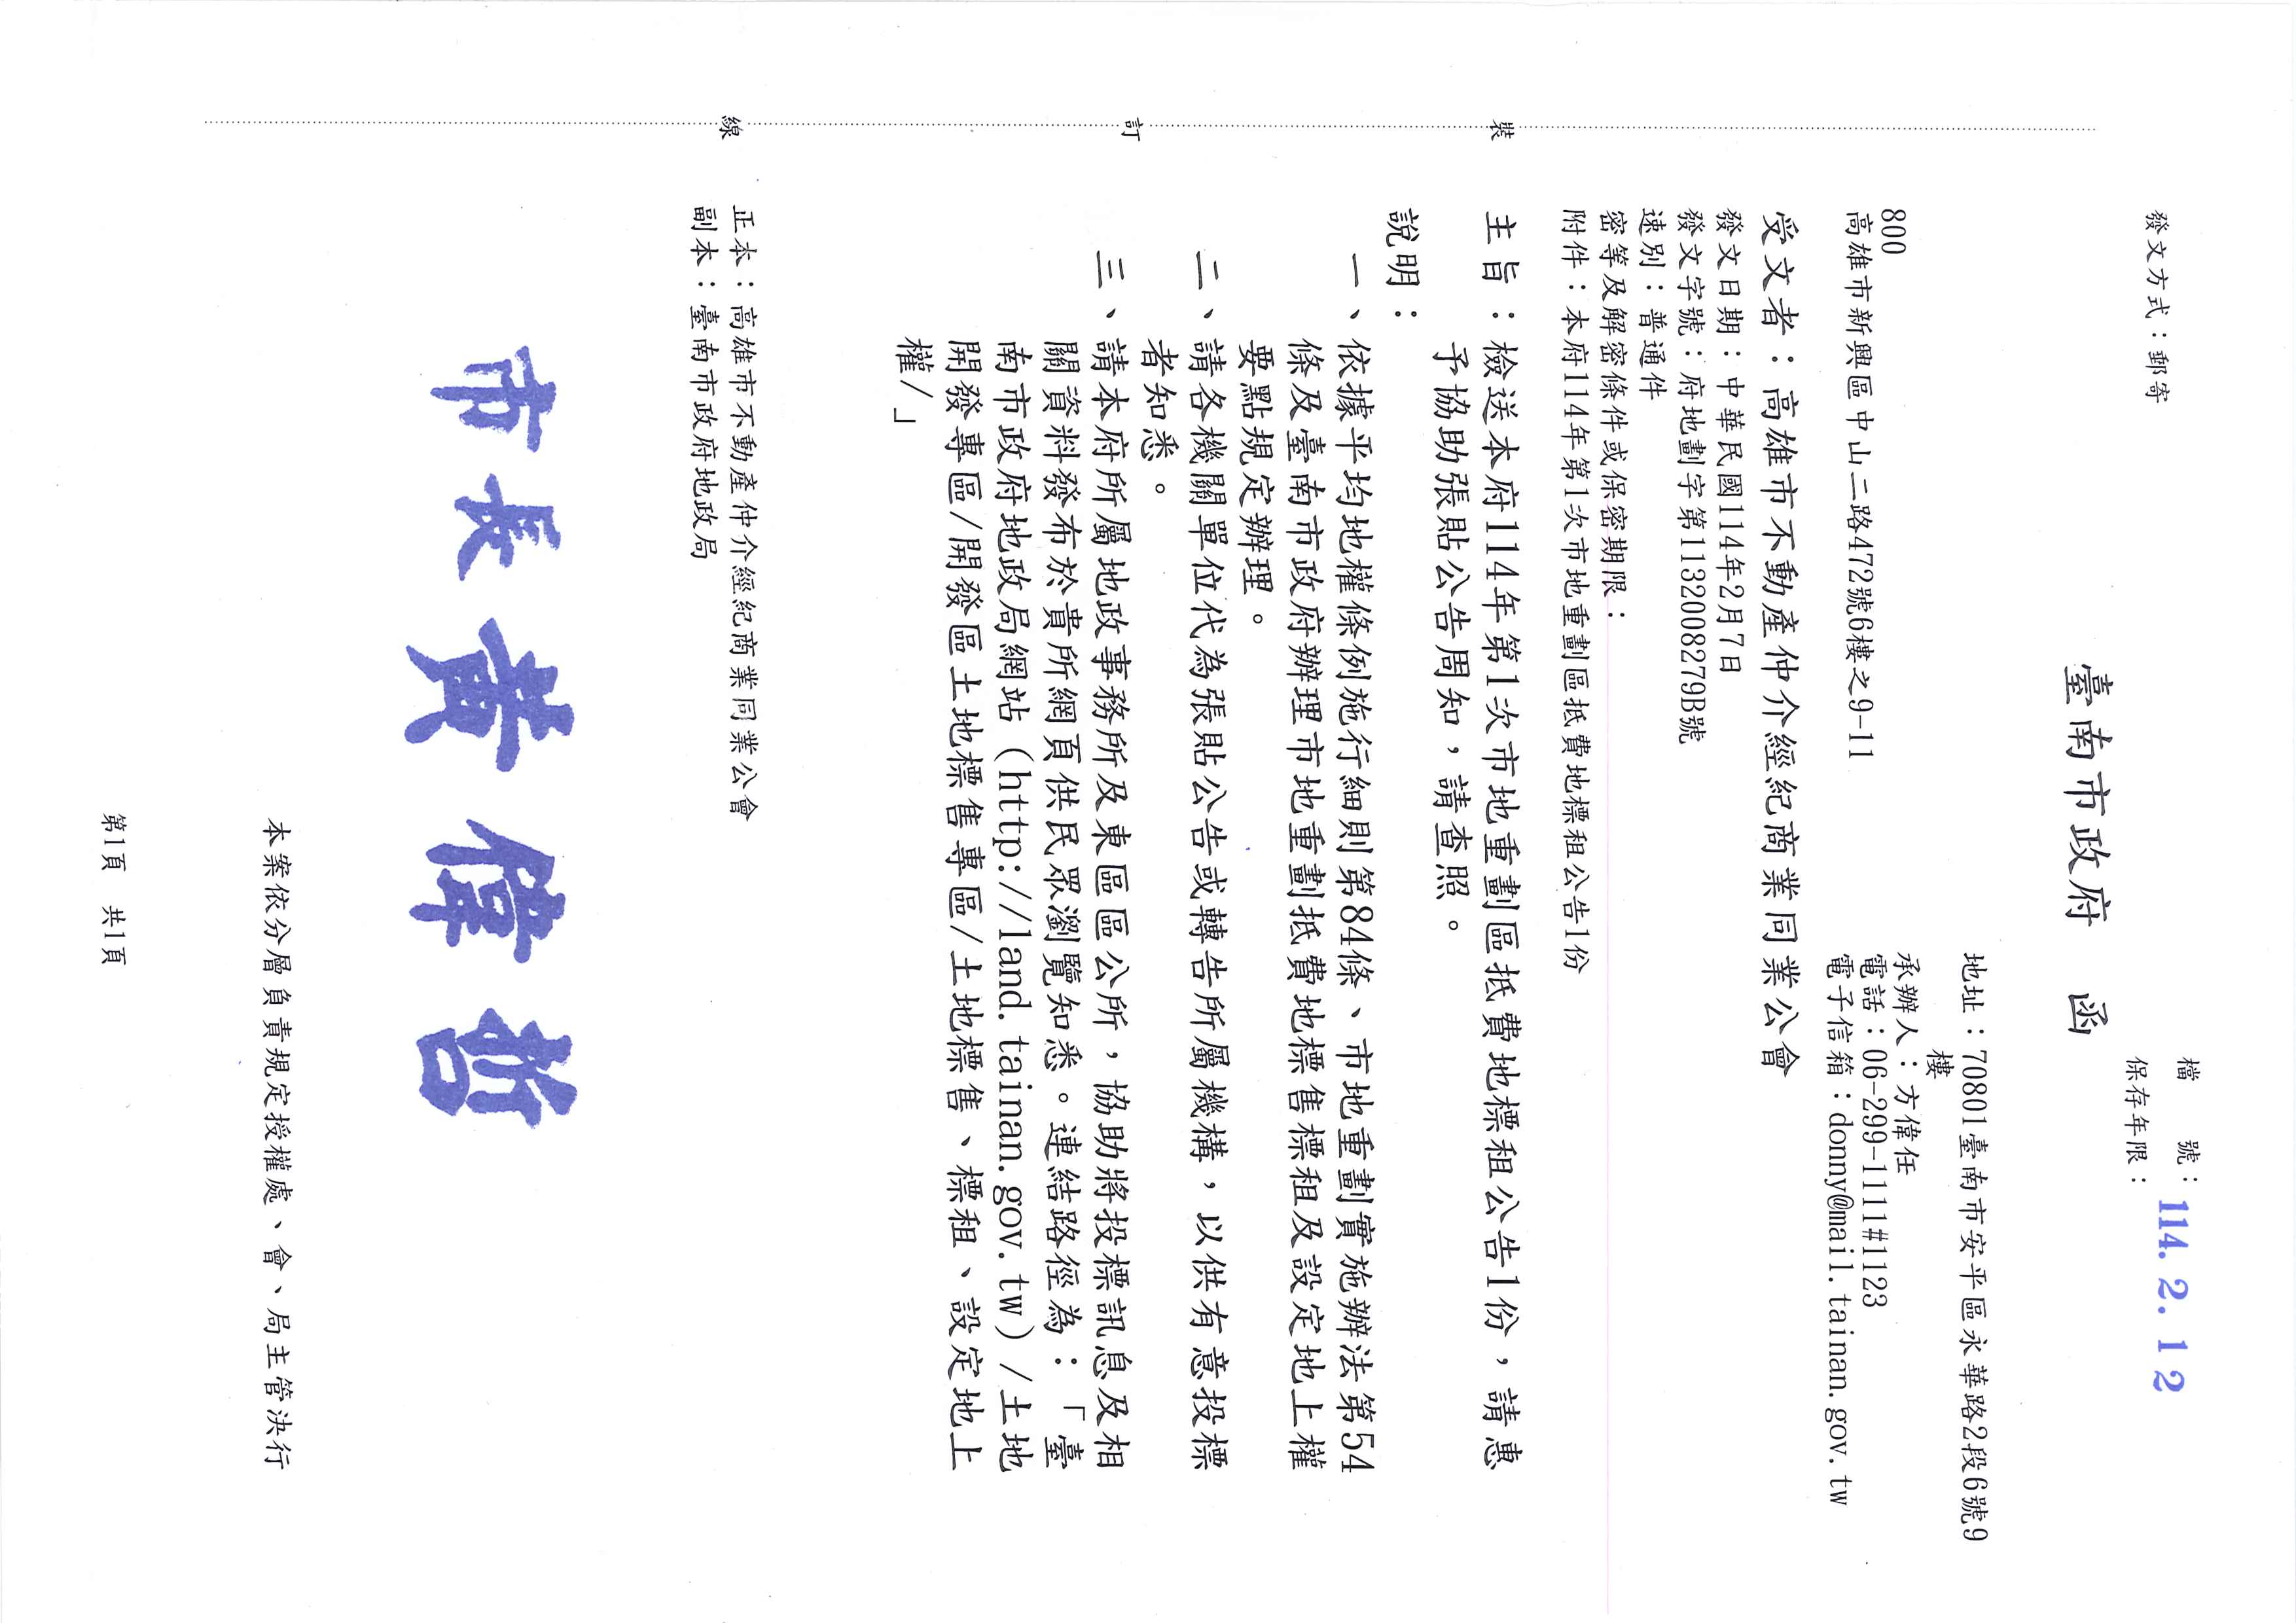 檔　　號：
保存年限：
114. 2. 12
發文方式：郵寄
臺南市政府　函
地址：70801臺南市安平區永華路2段6號9
樓
承辦人：方偉任
電話：06-299-1111#1123
電子信箱：donny@mail.tainan.gov.tw
800
高雄市新興區中山二路472號6樓之9-11
受文者：高雄市不動產仲介經紀商業同業公會
發文日期：中華民國114年2月7日
發文字號：府地劃字第1132008279B號
速別：普通件
密等及解密條件或保密期限：
附件：本府114年第1次市地重劃區抵費地標租公告1份
主旨：檢送本府114年第1次市地重劃區抵費地標租公告1份，請惠
予協助張貼公告周知，請查照。
說明：
一、依據平均地權條例施行細則第84條、市地重劃實施辦法第54
條及臺南市政府辦理市地重劃抵費地標售標租及設定地上權
要點規定辦理。
二、請各機關單位代為張貼公告或轉告所屬機構，以供有意投標
者知悉。
三、請本府所屬地政事務所及東區區公所，協助將投標訊息及相
關資料發布於貴所網頁供民眾瀏覽知悉。連結路徑為：「臺
南市政府地政局網站（http://land.tainan.gov.tw）/土地
開發專區/開發區土地標售專區/土地標售、標租、設定地上
權/」
正本：高雄市不動產仲介經紀商業同業公會
副本：臺南市政府地政局
市長黃偉哲
本案依分層負責規定授權處、會、局主管決行
第1頁　共1頁
裝
訂
線